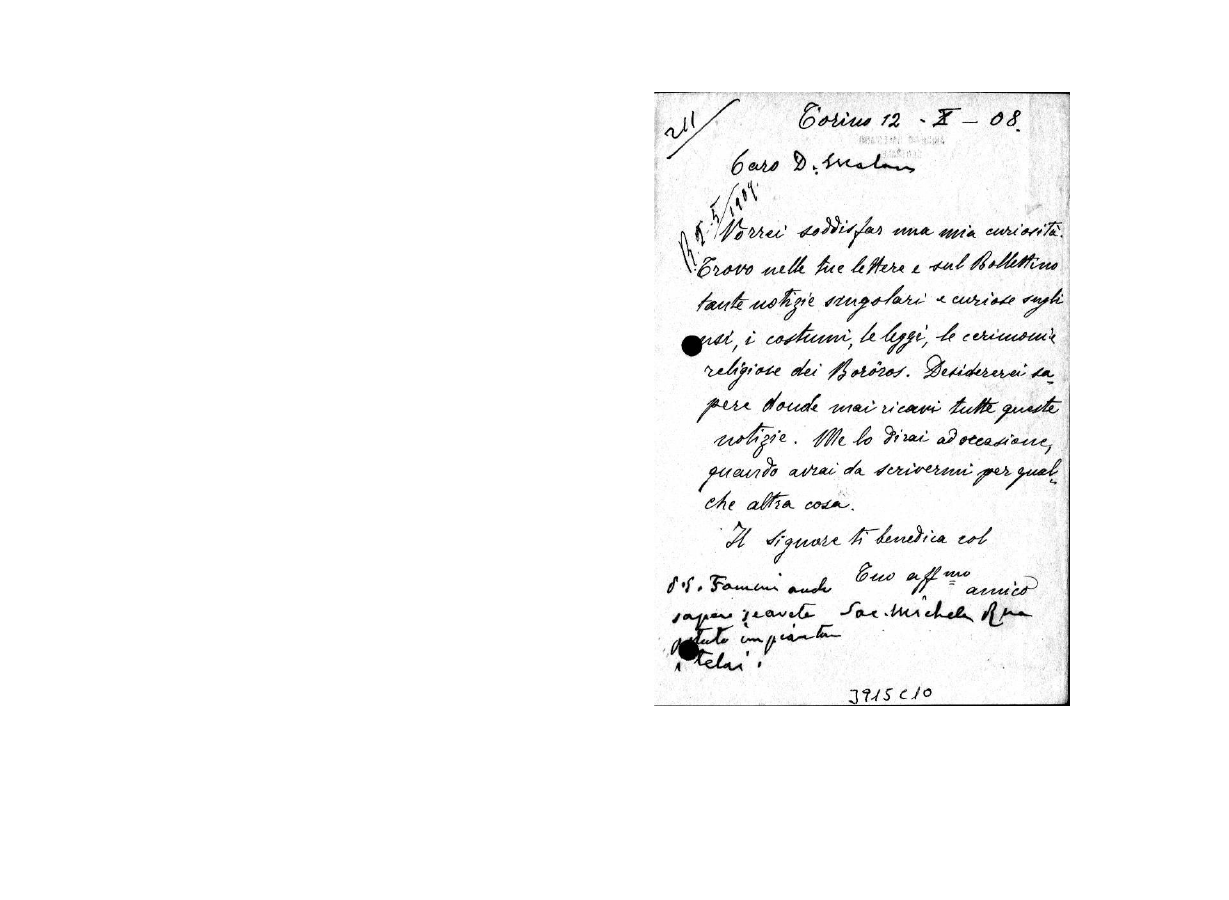 211
Torino 12 - X - 08.
Caro D. Malan
R. 2. 5/1909
Vorrei soddisfar una mia curiosità.
Trovo nelle tue lettere e sul Bollettino
tante notizie singolari e curiose sugli
usi, i costumi, le leggi, le cerimonie
religiose dei Boróros. Desidererei sa-
pere donde mai ricavi tutte queste
notizie. Me lo dirai ad occasione,
quando avrai da scrivermi per qual-
che altra cosa.
Il Signore ti benedica col
Tuo aff.mo
amico
Sac. Michele Rua
P.S. Fammi anche
sapere se avete
potuto impiantar
i telai.
3915 C10